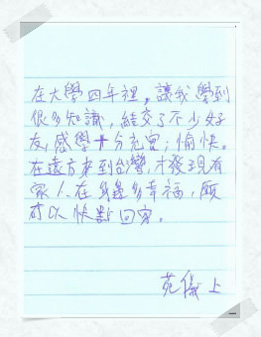 在大學四年裡,讓我學到
很多知識,結交了不少好
友,感學十分充實;愉快。
在遠方來到台灣,才發現有
家人在身邊多幸福,願
可以快點回家。
苑儀上